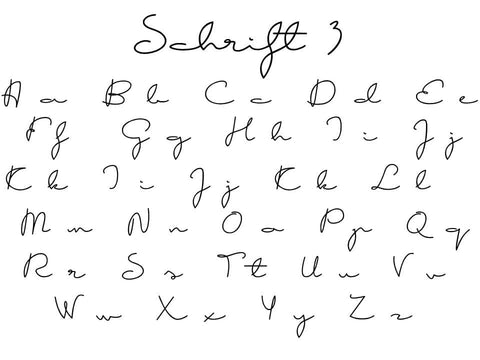 Schrift 3
A a B b C c D d E e
F f G g H h I i J j
K k I i J j K k L l
M m N n O o P p Q q
R r S s T t U u V v
W w X x Y y Z z